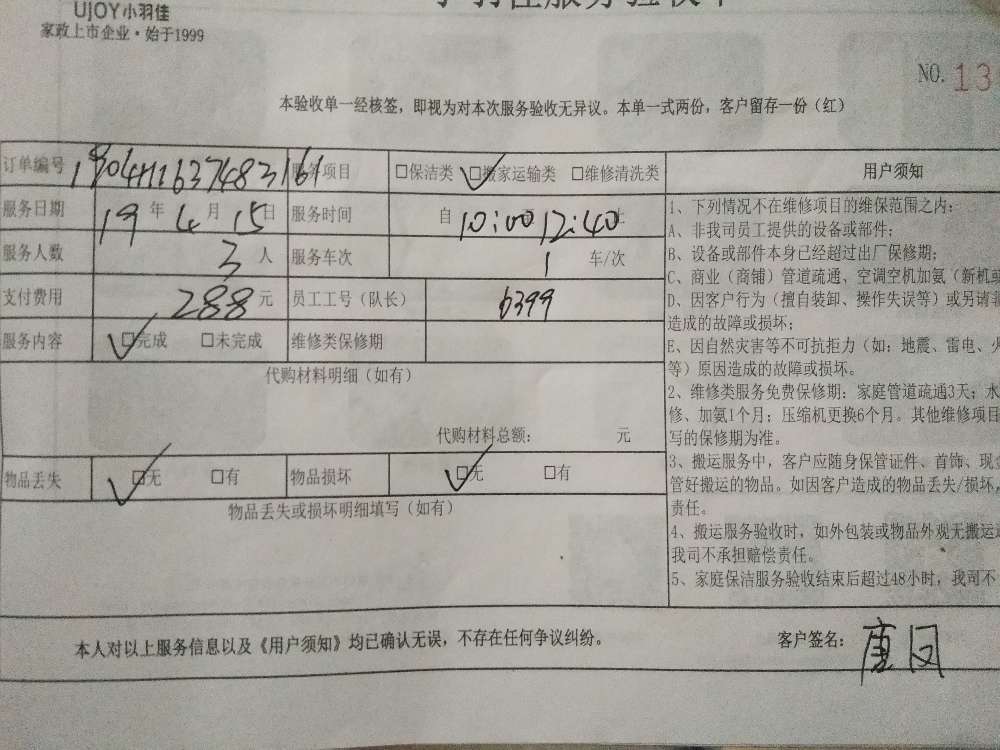 UJOY小羽佳
家政上市企业·始于1999
NO. 13
本验收单一经核签，即视为对本次服务验收无异议。本单一式两份，客户留存一份（红）
订单编号 服务项目 □保洁类 □搬家运输类 □维修清洗类 用户须知
服务日期 19年4月15日 服务时间 自10:00 12:40止
服务人数 3人 服务车次 1车/次
支付费用 288元 员工工号（队长） 6399
服务内容 □完成 □未完成 维修类保修期
代购材料明细（如有）
代购材料总额： 元
物品丢失 □无 □有 物品损坏 □无 □有
物品丢失或损坏明细填写（如有）
1、下列情况不在维修项目的维保范围之内：
A、非我司员工提供的设备或部件；
B、设备或部件本身已经超过出厂保修期；
C、商业（商铺）管道疏通、空调空机加氨（新机或
D、因客户行为（擅自装卸、操作失误等）或另请非
造成的故障或损坏；
E、因自然灾害等不可抗拒力（如；地震、雷电、火
等）原因造成的故障或损坏。
2、维修类服务免费保修期：家庭管道疏通3天；水
修、加氨1个月；压缩机更换6个月。其他维修项目
写的保修期为准。
3、搬运服务中，客户应随身保管证件、首饰、现金
管好搬运的物品。如因客户造成的物品丢失/损坏，
责任。
4、搬运服务验收时，如外包装或物品外观无搬运
我司不承担赔偿责任。
5、家庭保洁服务验收结束后超过48小时，我司不
本人对以上服务信息以及《用户须知》均已确认无误，不存在任何争议纠纷。 客户签名：